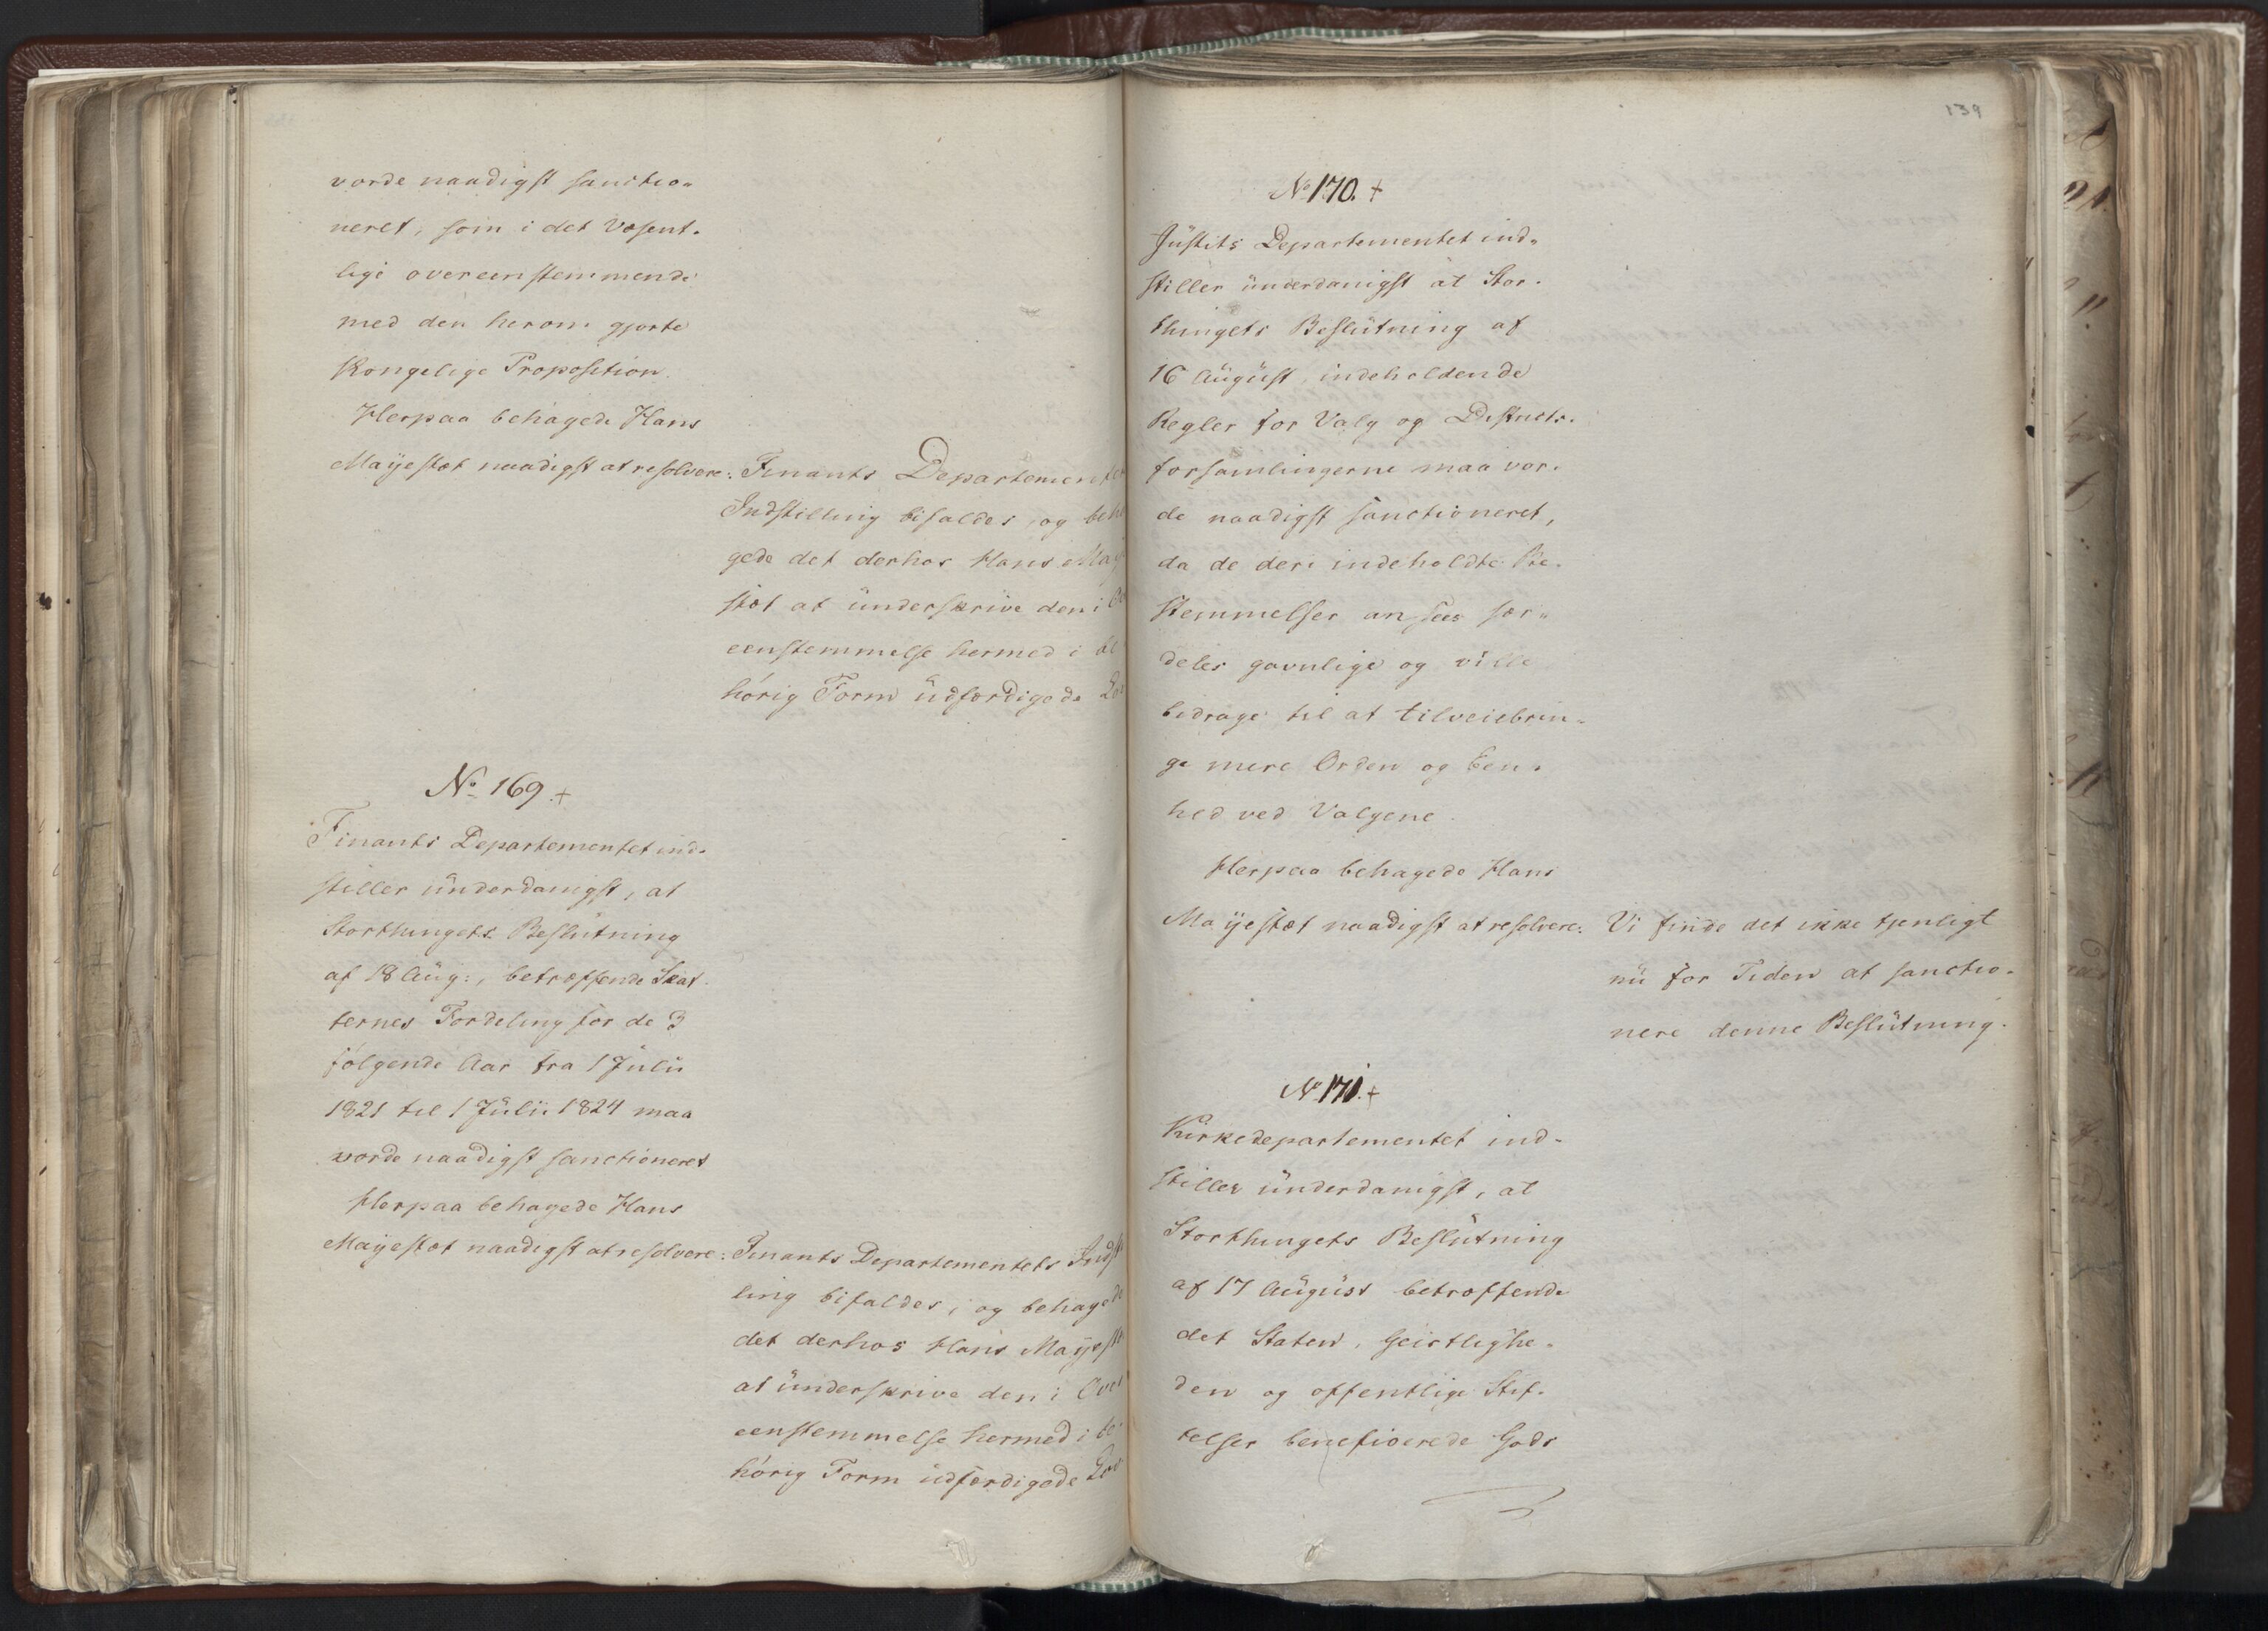 vorde naadigst sanctio-
neret, som i det Væsent-
lige overeenstemmende
med den herom gjorte
Kongelige Proposition.
Herpaa behagede Hans
Mayestæt naadigst at resolvere:
Finants Departemente
Indstilling bifaldes, og beha
gede det derhos Hans May
stæt at underskrive den i
eenstemmelse hermed i be
hörig Form udfærdigede Lov
No 169.+
Finants Departementet ind-
stiller underdanigst, at
Storthingets Beslutning
af 18 Aug:, betræffende Skat-
ternes Fordeling for de 3
følgende Aar fra 1 Julii
1821 til 1 Julii 1824 maa
vorde naadigst sanctioneret
Herpaa behagede Hans
Mayestæt naadigst at resolvere:
Finants Departementets Indst
ling bifaldes, og behagede
det derhos Hans Mayest
at underskrive den i Over
eenstemmelse hermed i be
hörig Form udfærdigede Lov
139
No 170.+
Justits Departementet ind-
stiller underdanigst at Stor-
thingets Beslutning af
16 August, indeholdende
Regler for Valg og Districts-
forsamlingerne maa vor-
de naadigst sanctioneret,
da de deri indeholdte Be-
stemmelser ansees sær-
deles gavnlige og ville
bidrage til at tilveiebrin-
ge mere Orden og Een-
hed ved Valgene.
Herpaa behagede Hans
Mayestæt naadigst at resolvere:
Vi finde det ikke tjenligt
nu for Tiden at sanctio-
nere denne Beslutning.
No 171.+
Kirkedepartementet ind-
stiller underdanigst, at
Storthingets Beslutning
af 17 August betræffende
det Staten, Geistlighe-
den og offentlige Stif-
telser beneficerede Gods